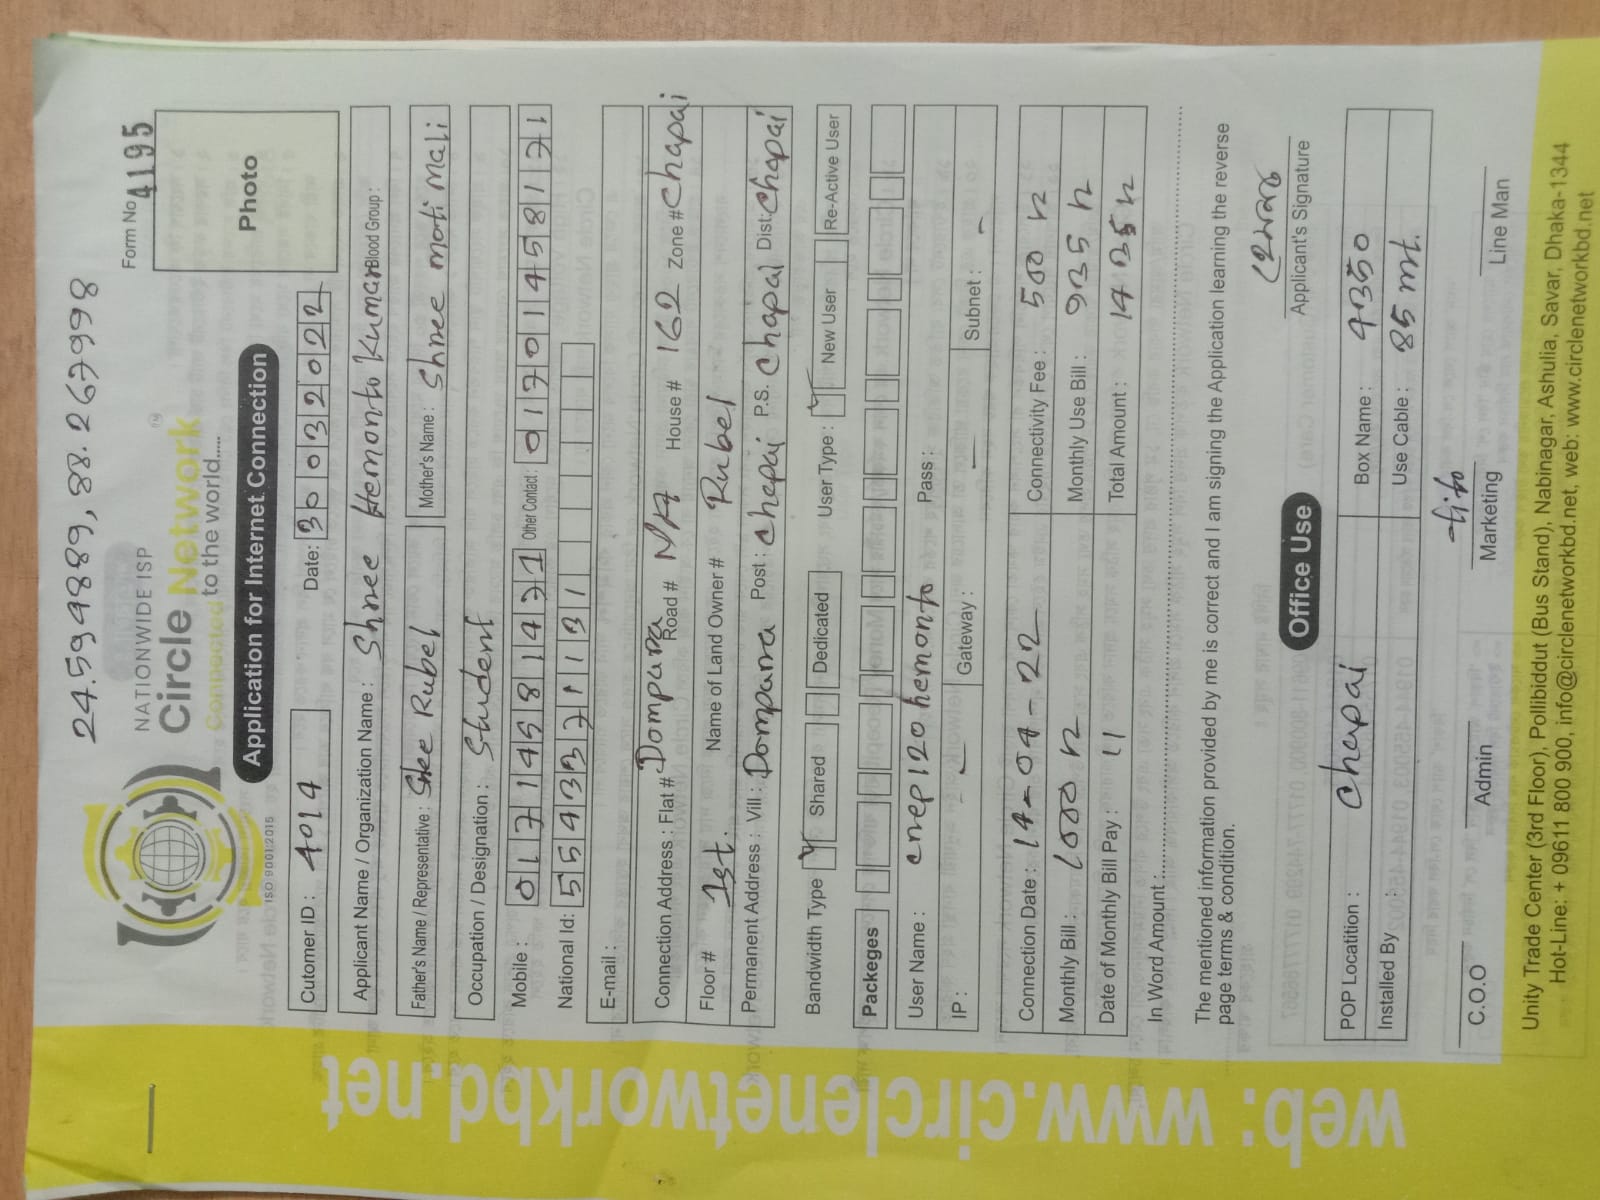 24.5949889, 88.267998
NATIONWIDE ISP
Circle Network
Connected to the world......
ISO 9001:2015
Form No 4195
Photo
Application for Internet Connection
Cutomer ID : 4014 Date: 30032022
Applicant Name / Organization Name : Shree Hemonto Kumar Blood Group :
Father's Name / Representative : Shee Rubel Mother's Name : Shree moti Mali
Occupation / Designation : Student
Mobile : 01714581471 Other Contact : 01701458171
National Id: 5543371131
E-mail :
Connection Address : Flat # Dompara Road # NA House # 162 Zone # Chapai
Floor # 1st. Name of Land Owner # Rubel
Permanent Address : Vill : Dompara Post : Chapai P.S. Chapai Dist: Chapai
Bandwidth Type Shared Dedicated User Type : New User Re-Active User
Packeges
User Name : cnep120hemonto Pass :
IP : Gateway : Subnet :
Connection Date : 14-04-22 Connectivity Fee : 500
Monthly Bill : 1000 Monthly Use Bill : 935
Date of Monthly Bill Pay : 11 Total Amount : 1435
In Word Amount :
The mentioned information provided by me is correct and I am signing the Application learning the reverse
page terms & condition.
হেমন্ত
Applicant's Signature
Office Use
POP Locatition : Chapai Box Name : 4350
Installed By Use Cable : 85 mt.
C.O.O Admin Marketing Line Man
Unity Trade Center (3rd Floor), Pollibiddut (Bus Stand), Nabinagar, Ashulia, Savar, Dhaka-1344
Hot-Line: + 09611 800 900, info@circlenetworkbd.net, web: www.circlenetworkbd.net
web: www.circlenetworkbd.net